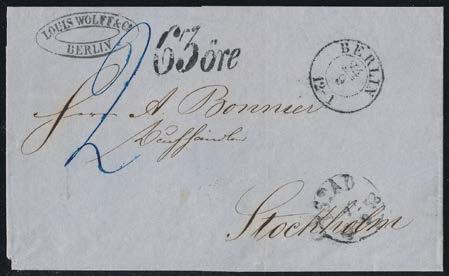 LOUIS WOLFF & Co
BERLIN
63 öre
BERLIN
2
Herrn A Bonnier
Buchhändler
Stockholm